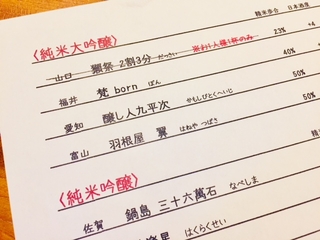 精米歩合 日本酒度
〈純米大吟醸〉
山口 獺祭 2割3分 だっさい ※お1人様1杯のみ 23% +4
福井 梵 born ぼん 40%
愛知 醸し人九平次 かもしびとくへいじ 50%
富山 羽根屋 翼 はねや つばさ 50%
〈純米吟醸〉
佐賀 鍋島 三十六萬石 なべしま
はくらくせい